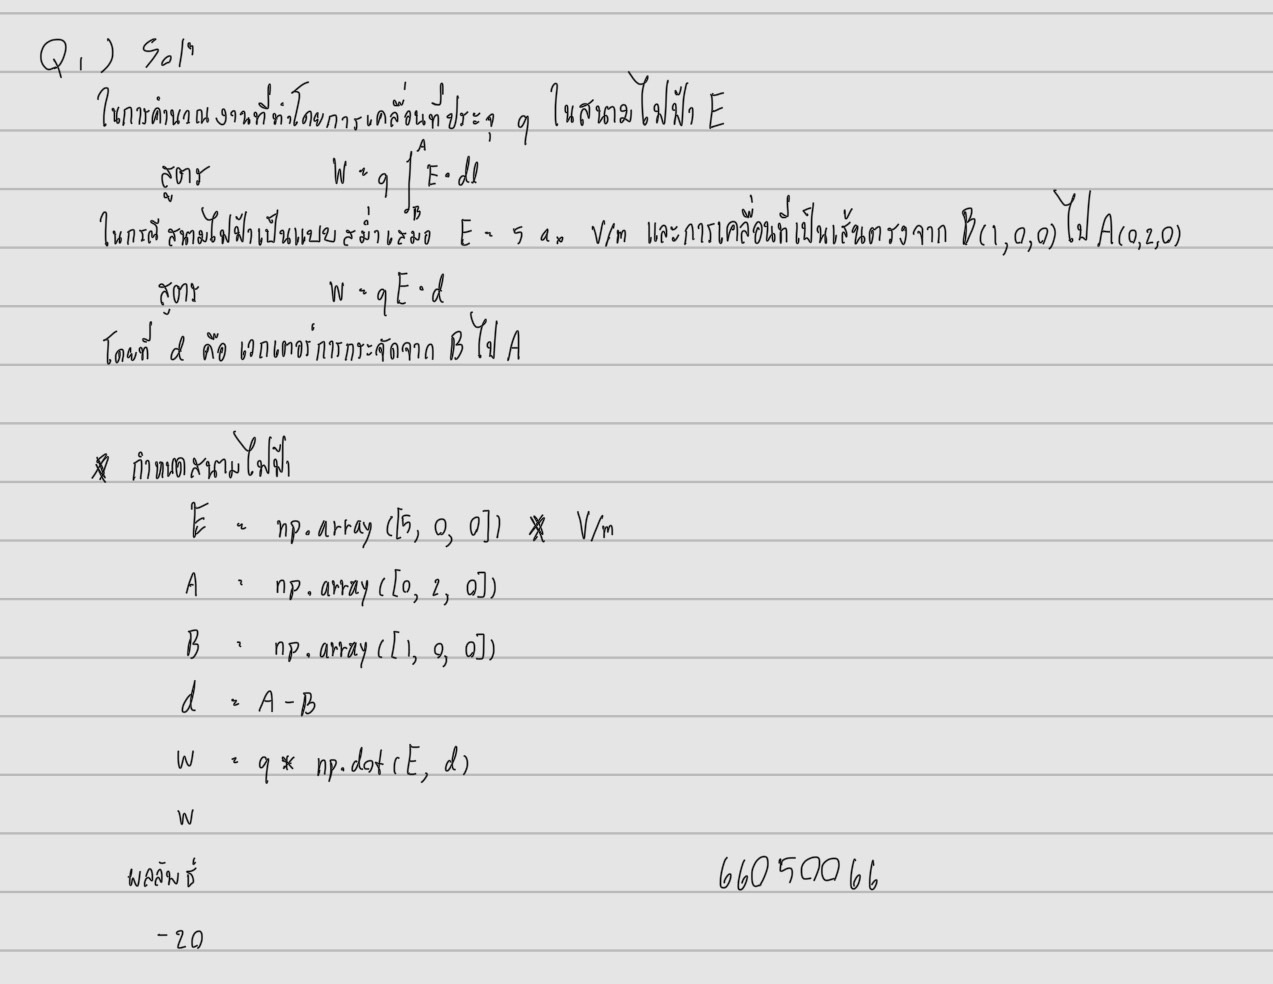 Q1) Solⁿ
ในการคำนวณงานที่ทำโดยการเคลื่อนที่ประจุ q ในสนามไฟฟ้า E
สูตร W = q ∫_B^A E · dl
ในกรณีสนามไฟฟ้าเป็นแบบสม่ำเสมอ E = 5 aₓ V/m และการเคลื่อนที่เป็นเส้นตรงจาก B(1,0,0) ไป A(0,2,0)
สูตร W = qE · d
โดยที่ d คือ เวกเตอร์การกระจัดจาก B ไป A
* กำหนดสนามไฟฟ้า
E = np.array([5, 0, 0]) * V/m
A = np.array([0, 2, 0])
B = np.array([1, 0, 0])
d = A - B
W = q * np.dot(E, d)
W
ผลลัพธ์
66050066
-20